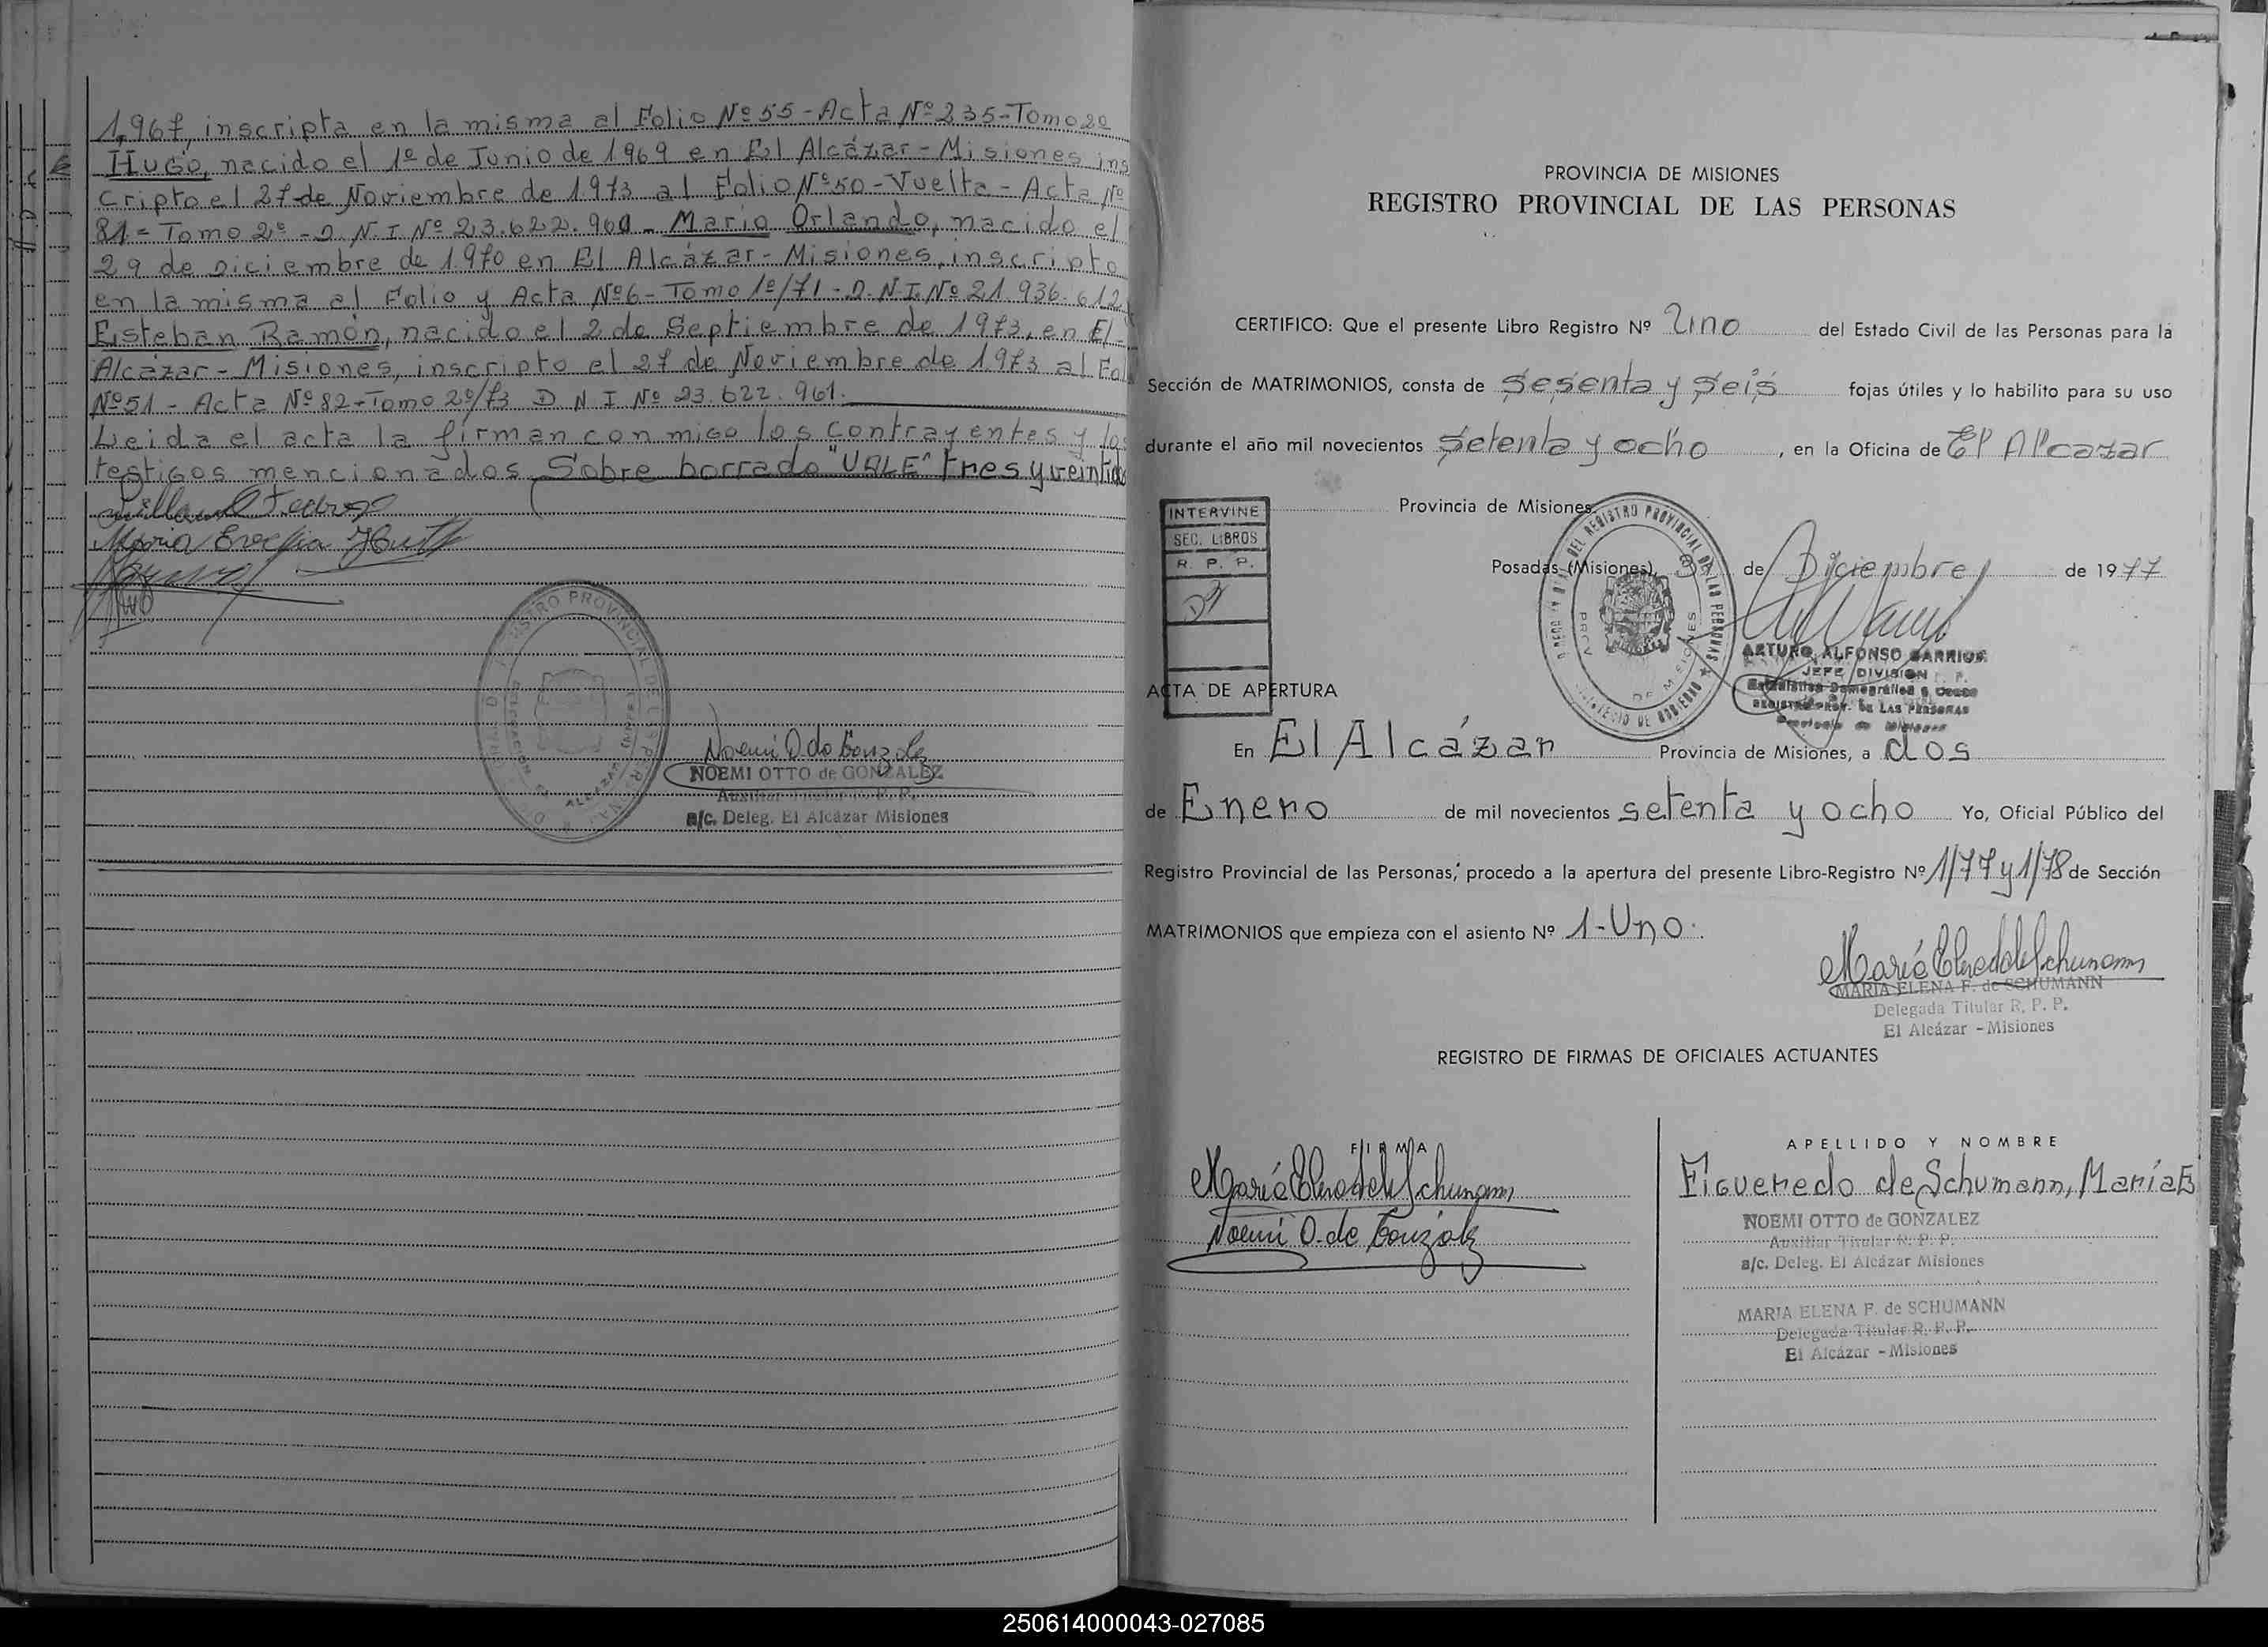 1.967, inscripta en la misma al Folio Nº 55 - Acta Nº 235 - Tomo 2º
HUGO, nacido el 1º de Junio de 1969 en El Alcázar - Misiones ins
cripto el 27 de Noviembre de 1973 al Folio Nº 50 - Vuelta - Acta Nº
81 = Tomo 2º - D. N. I Nº 23.622.960 - Mario Orlando, nacido el
29 de Diciembre de 1970 en El Alcázar - Misiones, inscripto
en la misma al Folio y Acta Nº 6 - Tomo 1º/71 - D. N. I. Nº 21.936.612
Esteban Ramón, nacido el 2 de Septiembre de 1973, en El
Alcázar - Misiones, inscripto el 27 de Noviembre de 1973 al Fol
Nº 51 - Acta Nº 82 - Tomo 2º/73 D N I Nº 23.622.961.
Leida el acta la firman conmigo los contrayentes y los
testigos mencionados Sobre borrado "VALE" tres y veintidos
Noemi O. de Gonzalez
NOEMI OTTO de GONZALEZ
Auxiliar Titular R. P. P.
a/c. Deleg. El Alcázar Misiones
PROVINCIA DE MISIONES
REGISTRO PROVINCIAL DE LAS PERSONAS
CERTIFICO: Que el presente Libro Registro Nº Uno del Estado Civil de las Personas para la
Sección de MATRIMONIOS, consta de Sesenta y Seis fojas útiles y lo habilito para su uso
durante el año mil novecientos Setenta y ocho, en la Oficina de El Alcazar
Provincia de Misiones
INTERVINE
SEC. LIBROS
R. P. P.
Posadas (Misiones), de Diciembre de 1977
ARTURO ALFONSO BARRIOS
JEFE DIVISION
REGISTRO PROV. DE LAS PERSONAS
Provincia de Misiones
ACTA DE APERTURA
En El Alcázar Provincia de Misiones, a dos
de Enero de mil novecientos setenta y ocho Yo, Oficial Público del
Registro Provincial de las Personas, procedo a la apertura del presente Libro-Registro Nº 1/77 y 1/78 de Sección
MATRIMONIOS que empieza con el asiento Nº 1-Uno.
María Elena de Schumann
MARIA ELENA F. de SCHUMANN
Delegada Titular R. P. P.
El Alcázar - Misiones
REGISTRO DE FIRMAS DE OFICIALES ACTUANTES
FIRMA
APELLIDO Y NOMBRE
María Elena de Schumann
Figueredo de Schumann, María E
Noemi O. de Gonzalez
NOEMI OTTO de GONZALEZ
Auxiliar Titular R. P. P.
a/c. Deleg. El Alcázar Misiones
MARIA ELENA F. de SCHUMANN
Delegada Titular R. P. P.
El Alcázar - Misiones
250614000043-027085